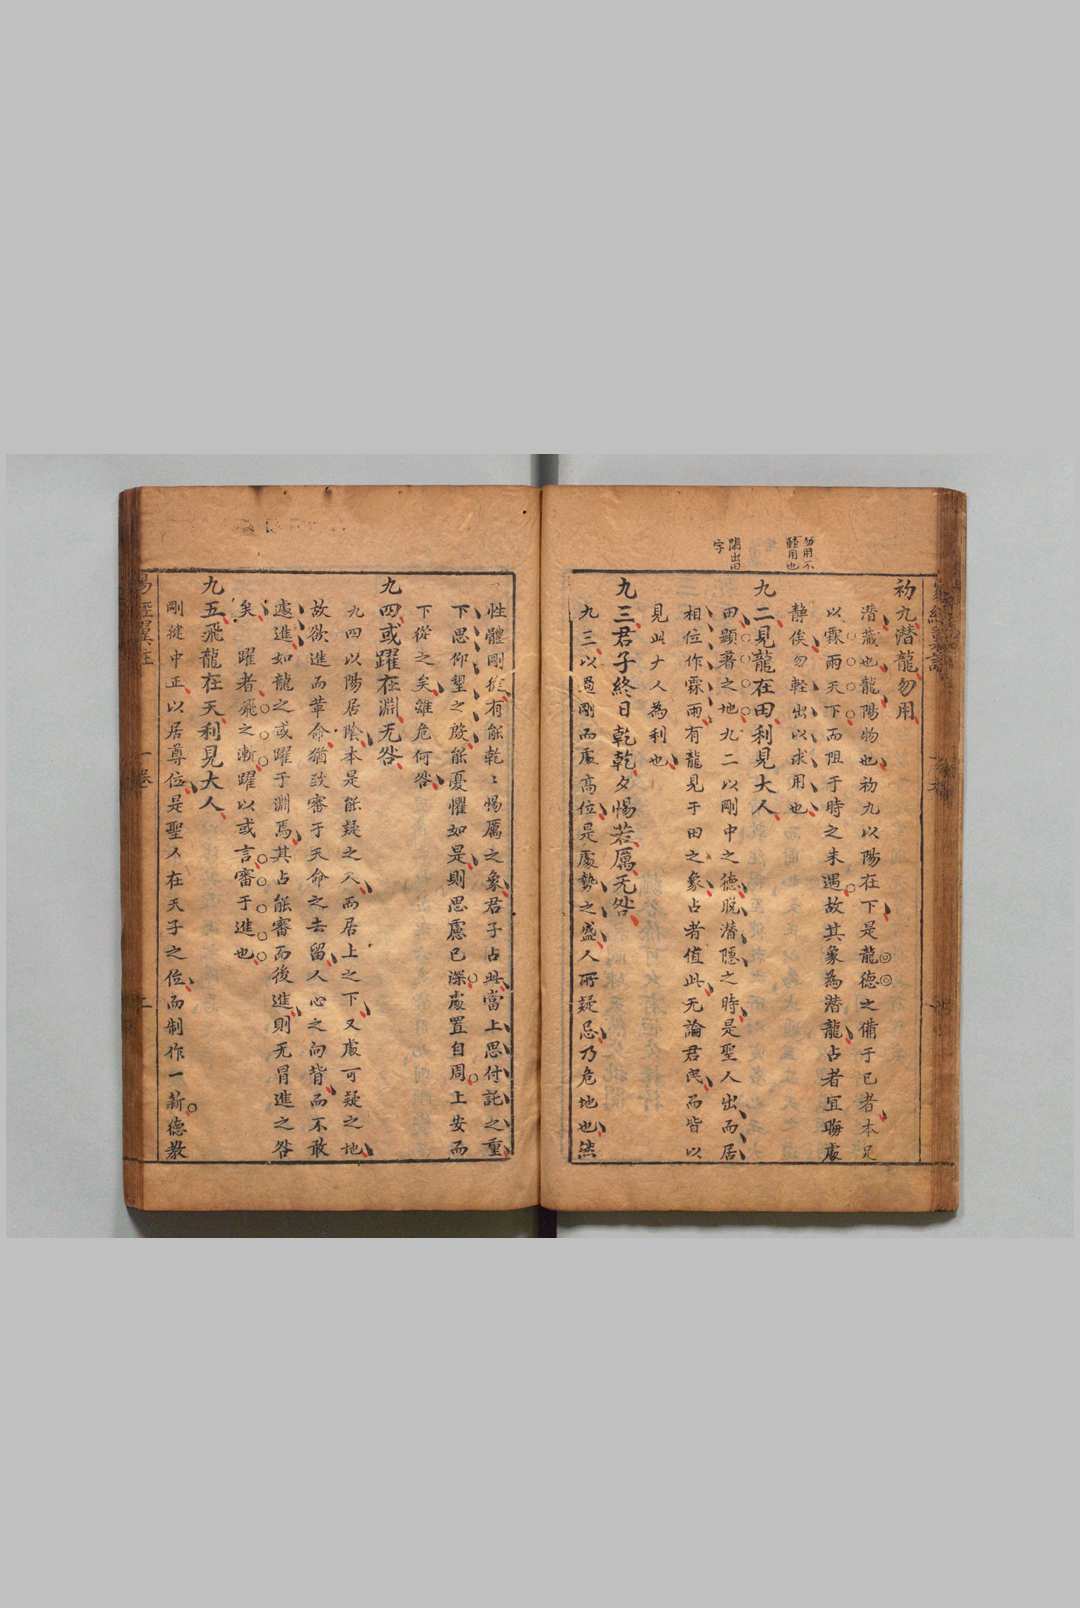 勿用不
輕用也
陽出田
字
初九潛龍勿用
潛藏也龍陽物也初九以陽在下是龍德之備于已者本足
以霖雨天下而阻于時之未遇故其象為潛龍占者宜晦處
靜俟勿輕出以求用也
九二見龍在田利見大人
田顯著之地九二以剛中之德脫潛隱之時是聖人出而居
相位作霖雨有龍見于田之象占者值此无論君民而皆以
見此大人為利也
九三君子終日乾乾夕惕若厲无咎
九三以過剛而處高位是處勢之盛人所疑忌乃危地也然
性體剛從有能乾〻惕厲之象君子占此當上思付託之重
下思仰望之殷能憂懼如是則思慮已深處置自周上安而
下從之矣雖危何咎
九四或躍在淵无咎
九四以陽居陰本是能疑之人而居上之下又處可疑之地
故欲進而革命猶致審于天命之去留人心之向背而不敢
遽進如龍之或躍于淵焉其占能審而後進則无冒進之咎
矣 躍者飛之漸躍以或言審于進也
九五飛龍在天利見大人
剛健中正以居尊位是聖人在天子之位而制作一新德教
一卷
二